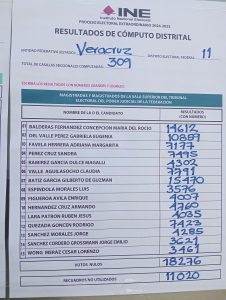 INE
Instituto Nacional Electoral
PROCESO ELECTORAL EXTRAORDINARIO 2024-2025
RESULTADOS DE CÓMPUTO DISTRITAL
ENTIDAD FEDERATIVA (ESTADO): Veracruz DISTRITO ELECTORAL FEDERAL: 11
TOTAL DE CASILLAS SECCIONALES COMPUTADAS: 309
MAGISTRADAS Y MAGISTRADOS DE LA SALA SUPERIOR DEL TRIBUNAL
ELECTORAL DEL PODER JUDICIAL DE LA FEDERACIÓN
NOMBRE DE LA O EL CANDIDATO RESULTADOS
(CON NÚMERO)
01 BALDERAS FERNANDEZ CONCEPCION MARIA DEL ROCIO 14612
02 DEL VALLE PEREZ GABRIELA EUGENIA 10387
03 FAVELA HERRERA ADRIANA MARGARITA 7177
04 PEREZ CRUZ SANDRA 7495
05 RAMIREZ GARCIA DULCE MAGALI 4302
06 VALLE AGUILASOCHO CLAUDIA 7791
07 BATIZ GARCIA GILBERTO DE GUZMAN 15470
08 ESPINDOLA MORALES LUIS 3576
09 FIGUEROA AVILA ENRIQUE 4007
10 HERNANDEZ CRUZ ARMANDO 4760
11 LARA PATRON RUBEN JESUS 4035
12 QUEZADA GONCEN RODRIGO 7423
13 SANCHEZ MORALES JORGE 4285
14 SANCHEZ CORDERO GROSSMANN JORGE EMILIO 3621
15 WONG MERAZ CESAR LORENZO 3461
VOTOS NULOS 18276
RECUADROS NO UTILIZADOS 11020